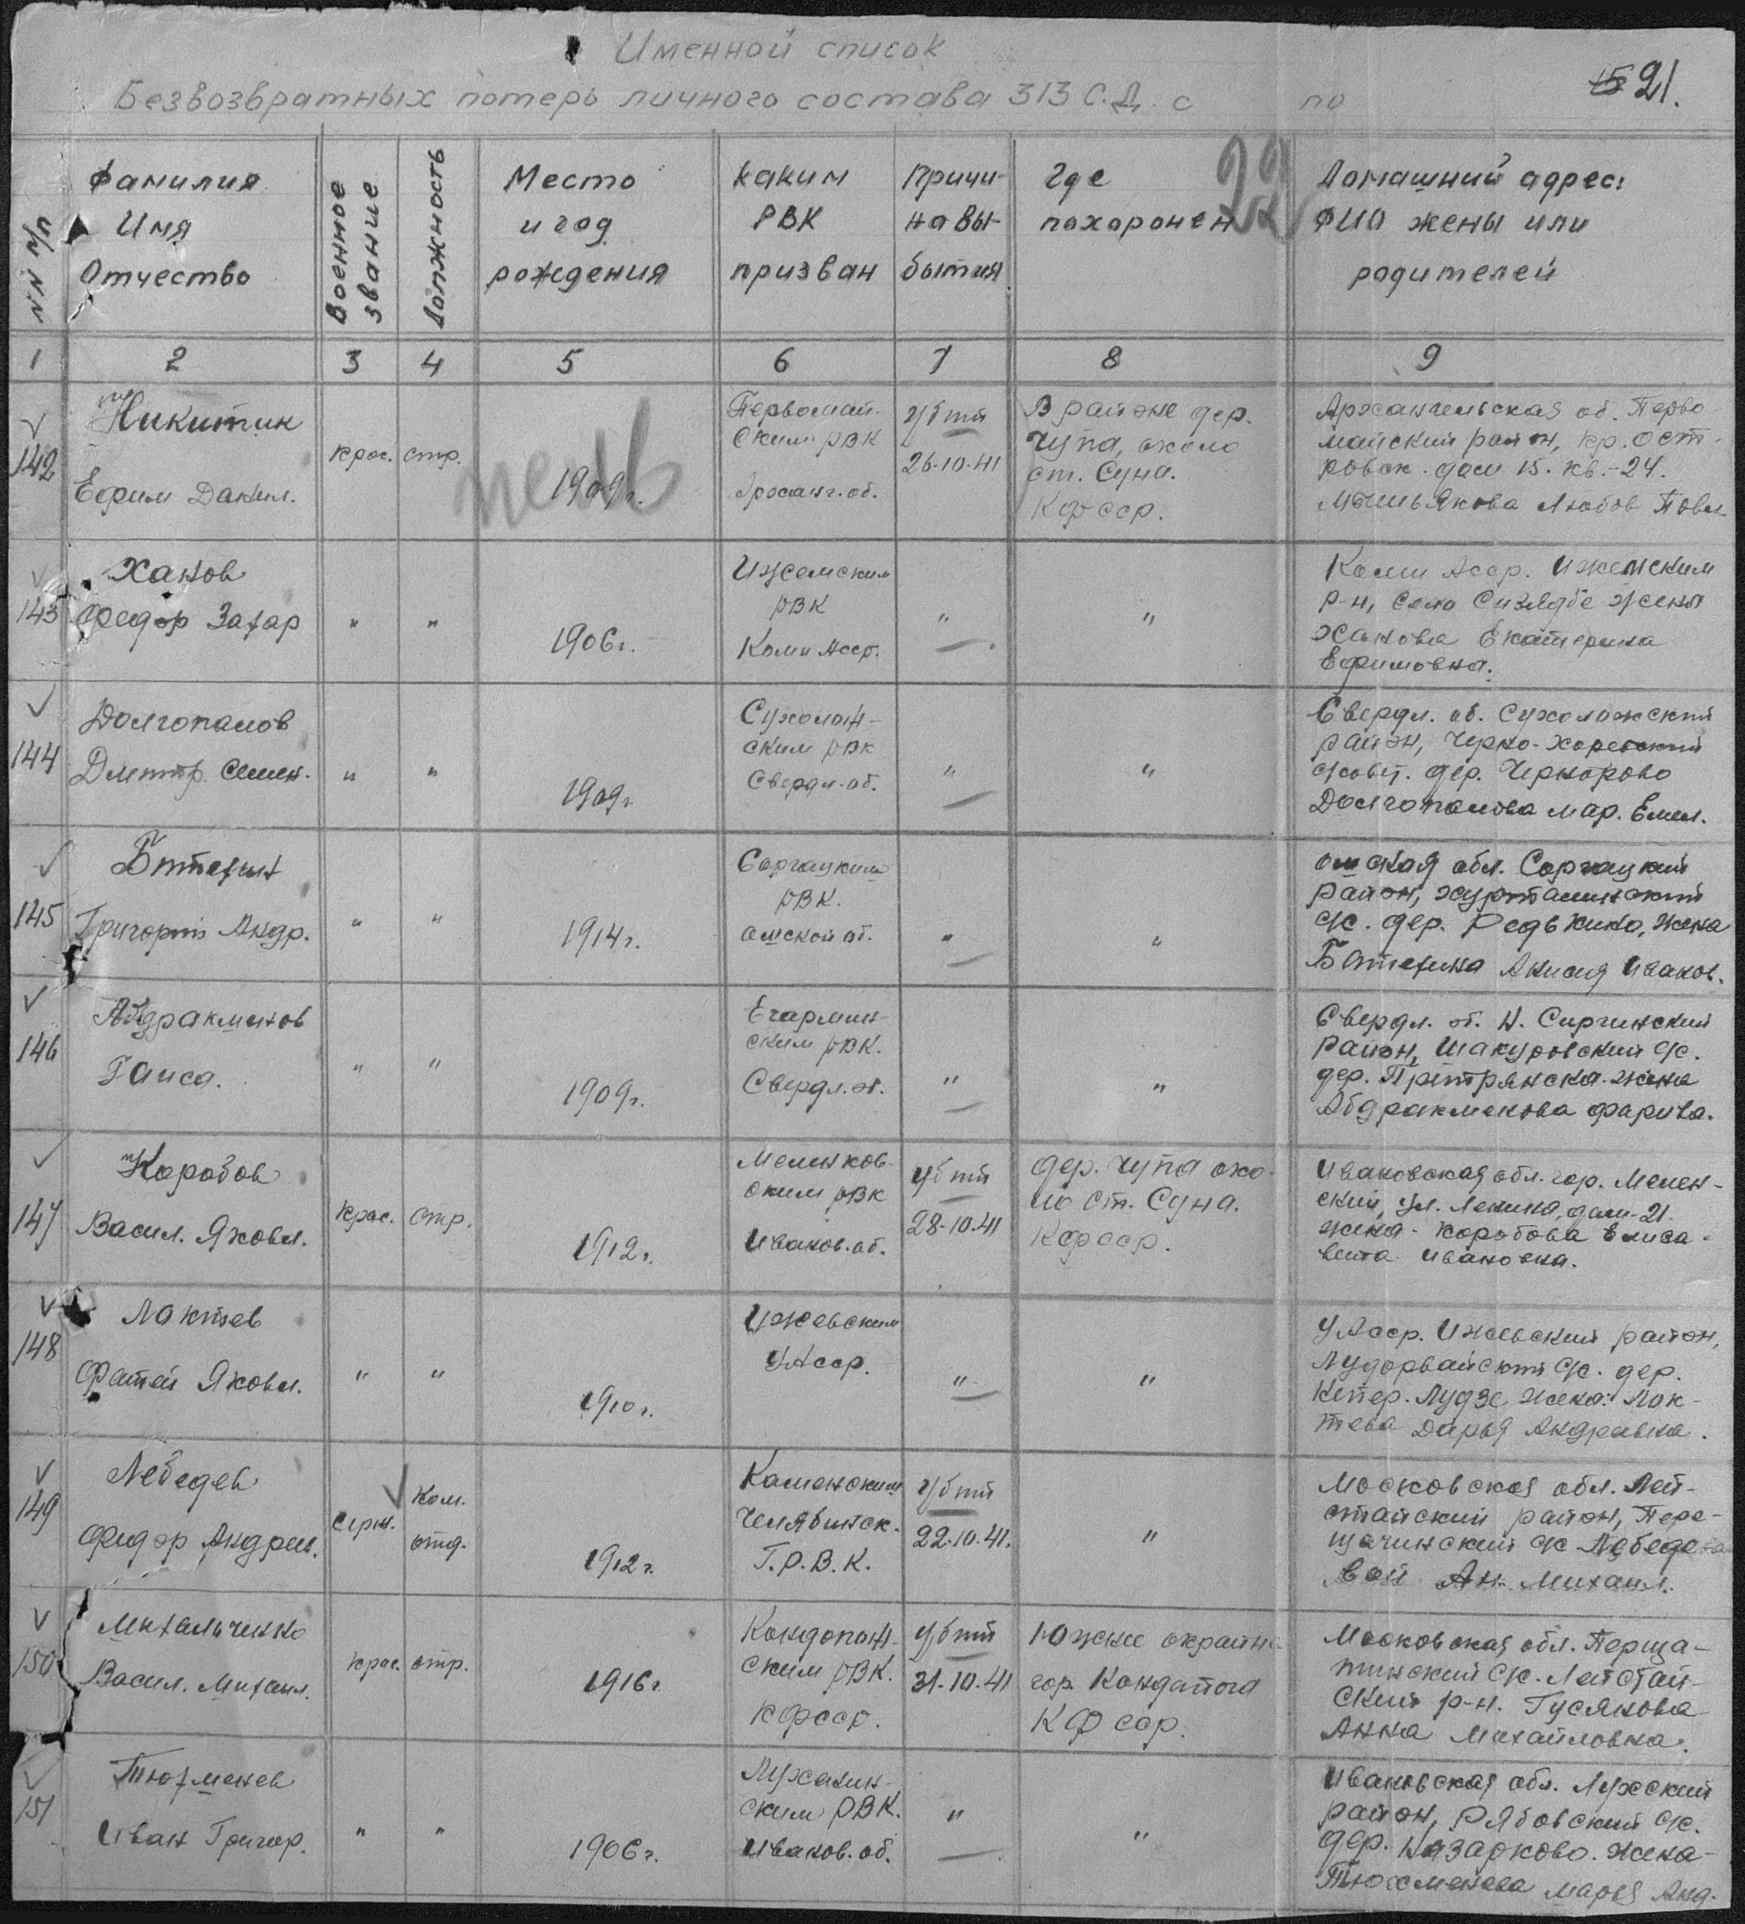 Именной список
Безвозвратных потерь личного состава 313 С.Д. с по
21.
NN п/п
Фамилия Имя Отчество
Военное звание
Должность
Место и год рождения
Каким РВК призван
Причина выбытия
Где похоронен
Домашний адрес: ФИО жены или родителей
1 2 3 4 5 6 7 8 9
142
Никитин
Ефим Данил.
крас. стр.
1909г.
Первомай-
ским РВК
Арханг. об.
убит
26-10-41
В районе дер.
Чупа, около
ст. Суна.
КФССР.
Архангельская об. Перво
майский район, кр. Ост-
ровск. дом 15. кв.-24.
Любов Павл
143
Ханов
Федор Захар
" "
1906г.
Ижемским
РВК
Коми Асср.
"
"
Коми Асср. Ижемским
р-н, село Сизябе жена
Ханова Екатерина
Ефимовна.
144
Долгополов
Дмитр. Семен.
" "
1909г
Сухолож-
ским РВК
Свердл. об.
"
"
Свердл. об. Сухоложский
район,
с/совет. дер.
Долгополова Мар. Емел.
145
Григорий Андр.
" "
1914г.
Саргацким
РВК.
омской об.
"
"
омская обл. Саргацкий
район,
с/с. дер. Редькино, жена
Анисия Иванов.
146
Абдракманов
Гаиса.
" "
1909г.
ским РВК.
Свердл. об.
"
"
Свердл. об. Н. Сергинский
район, Шакуровский с/с.
дер. жена
Абдракманова
147
Коробов
Васил. Яковл.
крас. стр.
1912г.
Меленков-
ским РВК
Иванов. об.
убит
28-10-41
дер. Чупа око-
ло ст. Суна.
КФССР.
Ивановская обл. гор. Мелен-
ский, ул. Ленина, дом-21.
жена - Коробова Елиса-
вета Ивановна.
148
Локтев
Фатей Яковл.
" "
1910г.
Ижевским
УАССР.
"
"
УАССР. Ижевский район,
с/с. дер.
Лудзе жена: Лок-
тева Дарья Андревна.
149
Лебедев
Федор Андрев.
серж.
Ком.
отд.
1912г.
Каменским
Челябинск.
Г.Р.В.К.
убит
22-10-41.
"
Московская обл.
район,
с/с
Ан. Михаил.
150
Михальченко
Васил. Михаил.
крас. стр.
1916г
Кондопож-
ским РВК.
КФССР.
убит
31-10-41
Южнее окраина
гор. Кондапога
КФССР.
Московская обл.
с/с.
р-н. Гусякова
Анна Михайловна.
151
Тюхменев
Иван Григор.
" "
1906г.
ским РВК.
Иванов. об.
"
"
Ивановская обл. Лухский
район, Рябовский с/с.
дер. Назарково. жена-
Тюхменева Марья Анд.